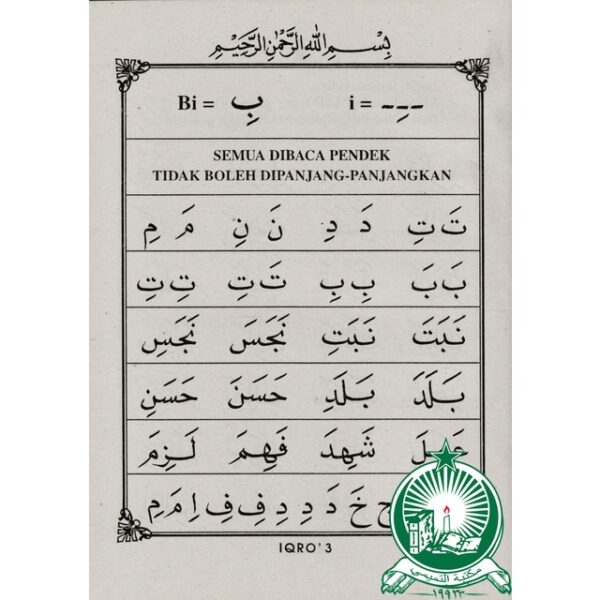 بِسْمِ اللهِ الرَّحْمٰنِ الرَّحِيْمِ
Bi = بِ i = ـِ
SEMUA DIBACA PENDEK
TIDAK BOLEH DIPANJANG-PANJANGKAN
تَ تِ دَ دِ نَ نِ مَ مِ
بَ بَ بِ بِ تَ تَ تِ تِ
نَبَتَ نَبَتِ نَجَسَ نَجَسِ
بَلَدَ بَلَدِ حَسَنَ حَسَنِ
شَهِدَ فَهِمَ لَزِمَ
خَ دَ دِ دِ فِ فِ اِ مَ مِ
IQRO' 3
مكتبة التميمي